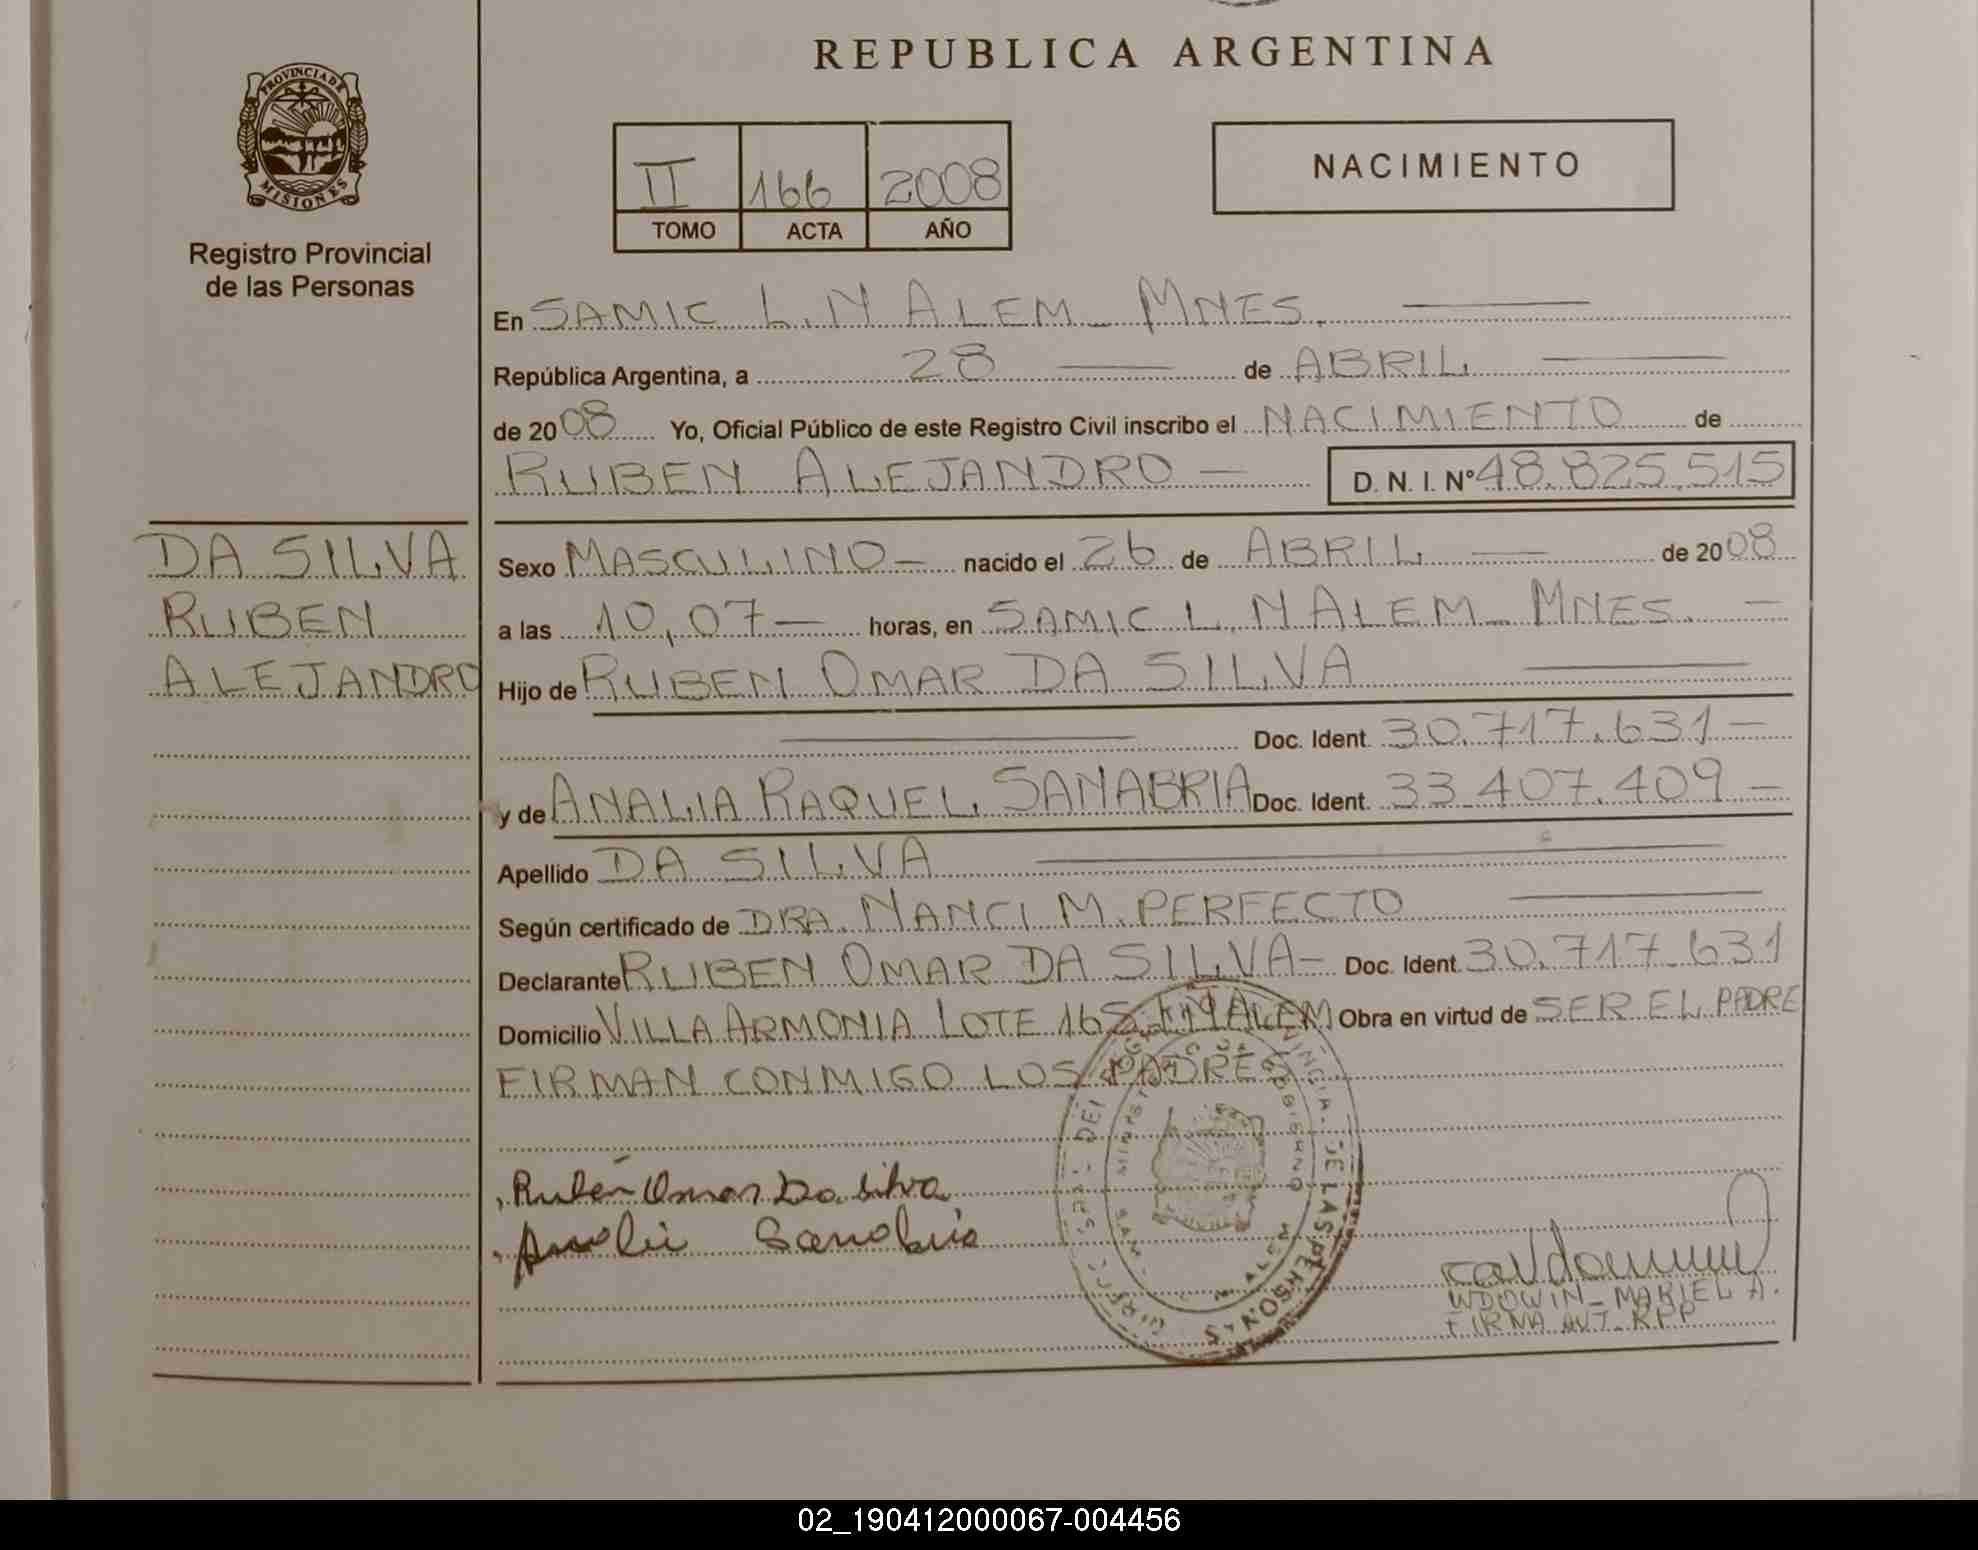 REPUBLICA ARGENTINA
PROVINCIA DE
MISIONES
Registro Provincial
de las Personas
II 166 2008
TOMO ACTA AÑO
NACIMIENTO
En SAMIC L. N ALEM - MNES.
República Argentina, a 28 de ABRIL
de 2008 Yo, Oficial Público de este Registro Civil inscribo el NACIMIENTO de
RUBEN ALEJANDRO - D. N. I. Nº 48.825.515
DA SILVA
RUBEN
ALEJANDRO
Sexo MASCULINO - nacido el 26 de ABRIL de 2008
a las 10,07 - horas, en SAMIC L. N ALEM - MNES. -
Hijo de RUBEN OMAR DA SILVA
Doc. Ident. 30.717.631 -
y de ANALIA RAQUEL SANABRIA Doc. Ident. 33.407.409 -
Apellido DA SILVA
Según certificado de DRA. NANCI M. PERFECTO
Declarante RUBEN OMAR DA SILVA - Doc. Ident. 30.717.631
Domicilio VILLA ARMONIA LOTE 165 L N ALEM Obra en virtud de SER EL PADRE
FIRMAN CONMIGO LOS PADRES
Rubén Omar Da Silva
Analia Sanabria
DE LAS PERSONAS
N. ALEM
WDOWIN - MARIEL A.
FIRMA AUT. RPP
02_190412000067-004456